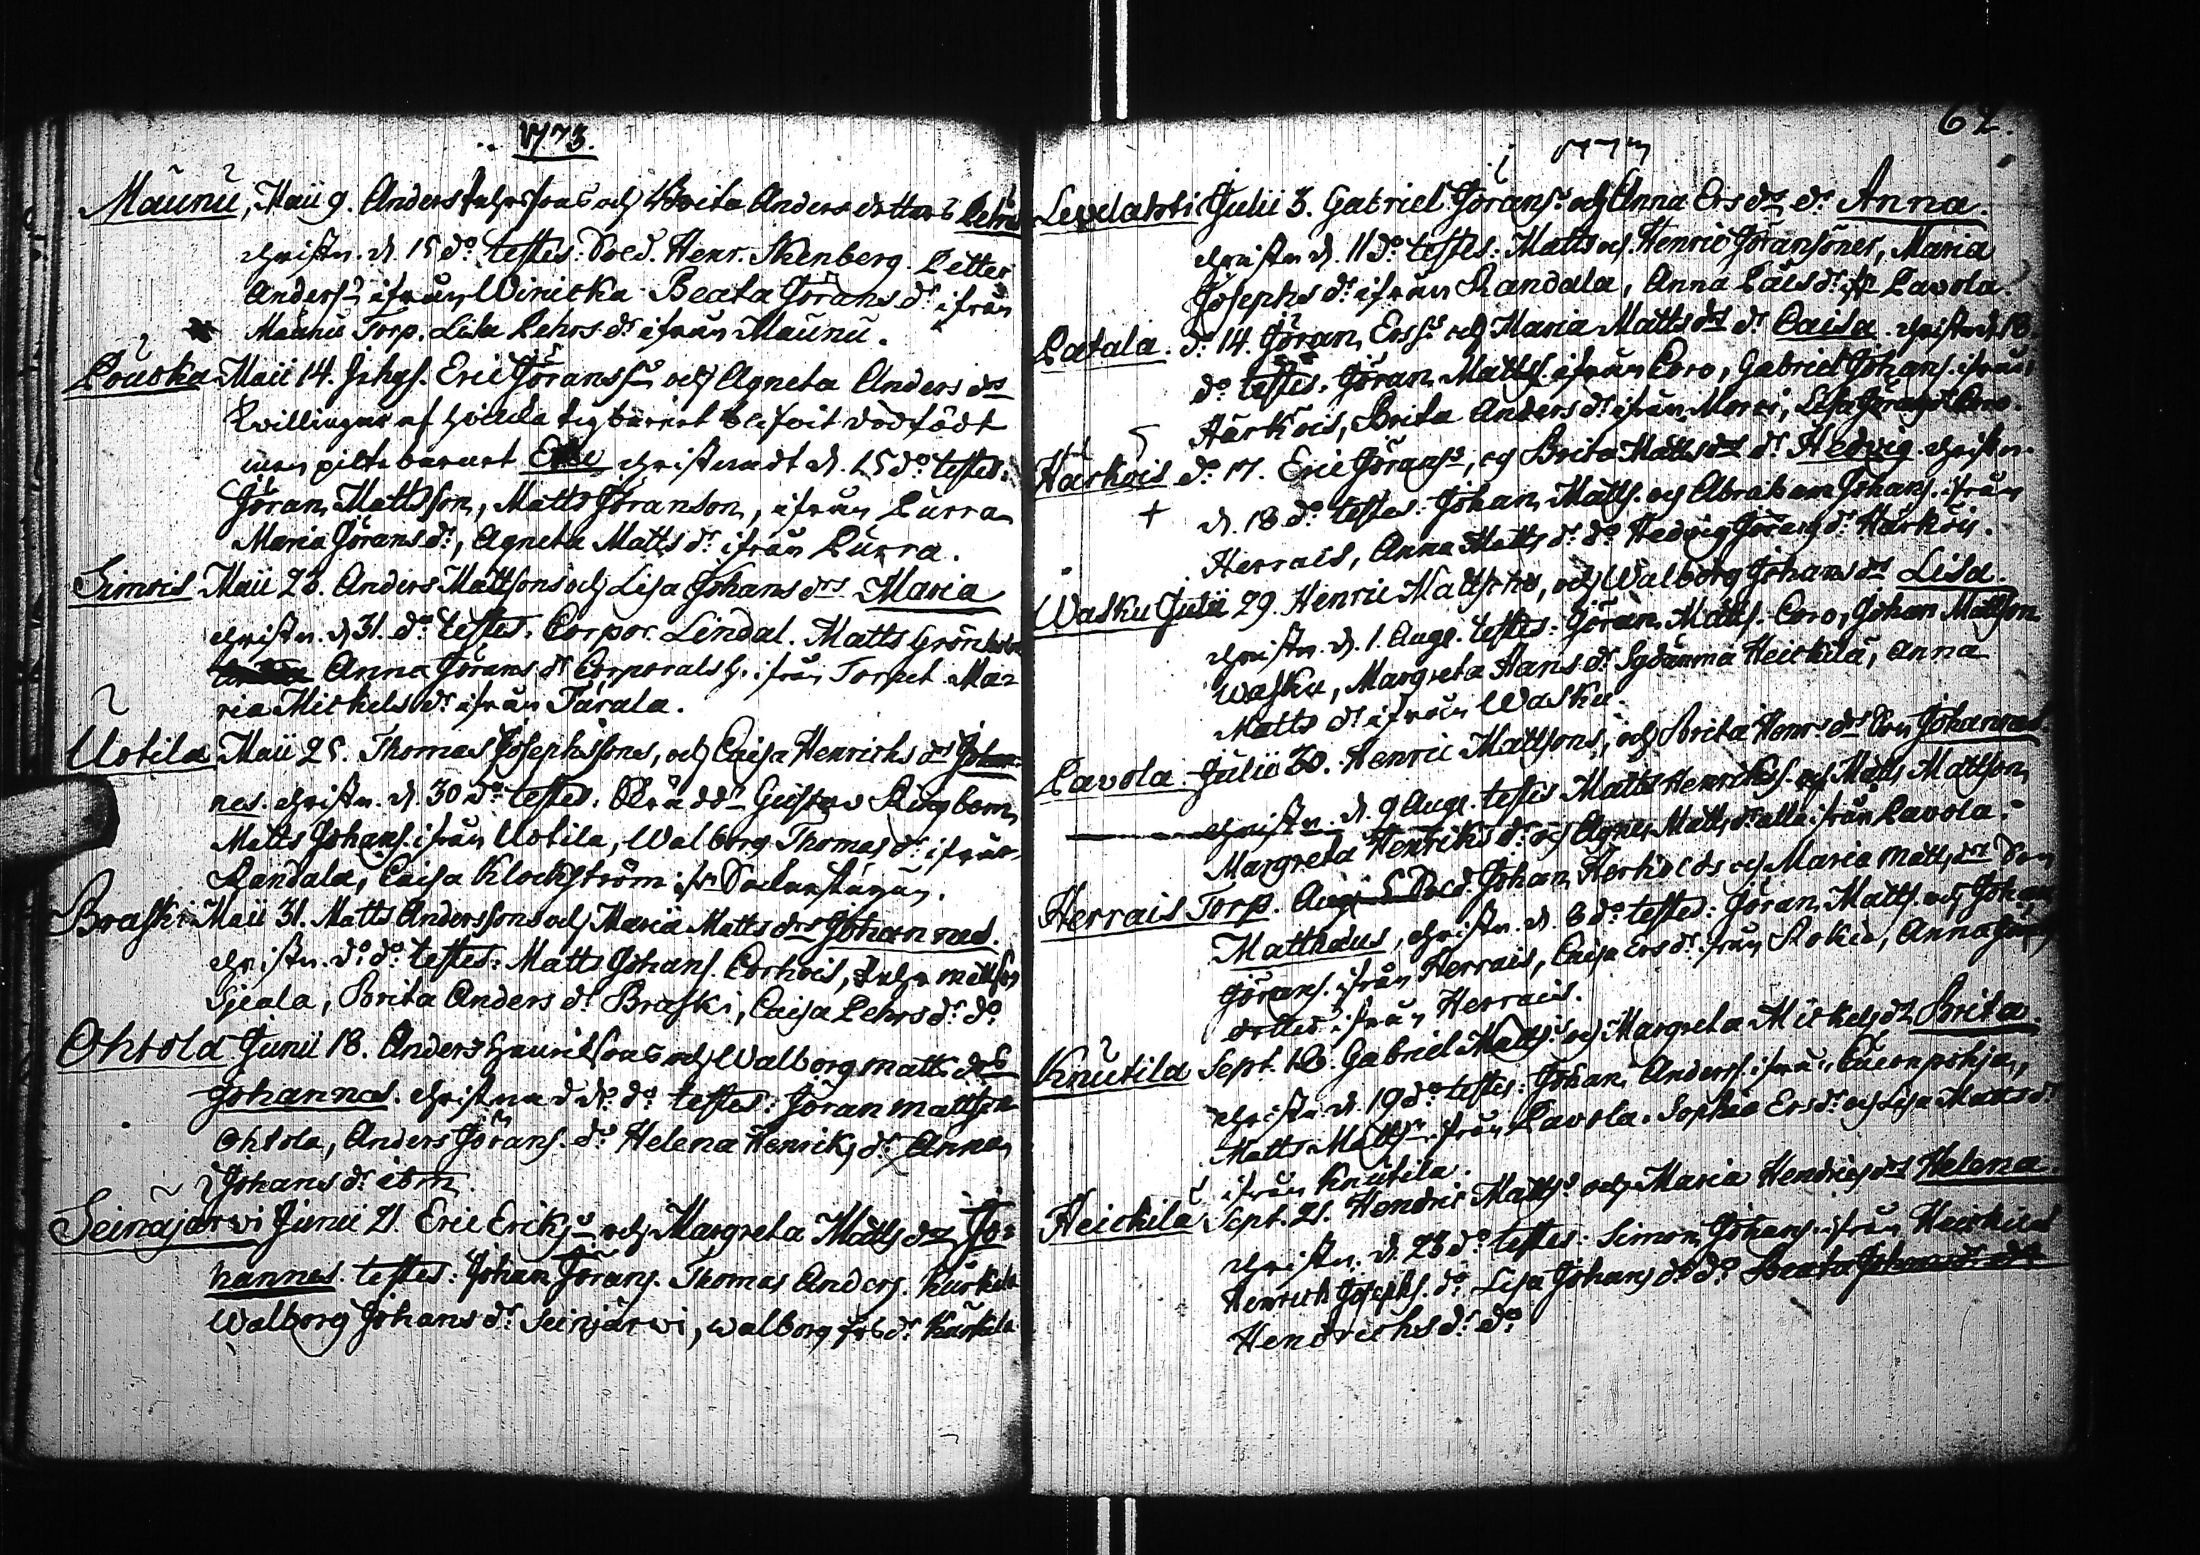 1773.
Maunu, Maii 9. Anders och Brita Anders dotters
christn. d. 15 do testes: Sold. Henr. Stenberg. Petter
Anders ifrån Winicka Beata Jörans dr ifrån
Maunu Torp. Lisa Pehrs dr ifrån Maunu.
Maii 14. Eric Jöranss och Agneta Anders drs
Twillingar af hvilka blifvit dödfödt
christnadt d. 15 do testes:
Jöran Mattsson, Matts Jöranson, ifrån Purra
Maria Jörans dr, Agneta Matts dr ifrån Purra.
Simois Maii 23. Anders Mattsons och Lisa Johans drs Maria
christn. d 31. do testes. Corpor. Lindal. Matts
Anna Jörans dr Corporals h. ifrån Torpet Ma-
ria Mickels dr ifrån Tarala.
Uotila Maii 25. Thomas Josephssons, och Caisa Henrichs drs Johan-
nes. christn. d. 30 do testes: Gustav Ringbom
Matts Johans. ifrån Uotila, Walborg Thomas dr ifrån
Randala, Caisa Klockström
Braski Maii 31. Matts Anderssons och Maria Matts drs Johannes.
christn. do do testes: Matts Johans. Corhois, Matts
Sjeala, Brita Anders dr Braski, Caisa Pehrs dr do
Ohtola Junii 18. Anders Henrikssons och Walborg Matts drs
Johannes. christnad do do testes: Jöran Mattson
Ohtola, Anders Jörans. do Helena Henriks dr Anna
Johans dr ibm.
Seinäjärwi Junii 21 Eric Eriks och Margreta Matts drs Jo-
hannes. testes: Johan Jörans. Thomas Anders.
Walborg Johans dr Seinäjärwi, Walborg
62.
1773
Julii 3. Gabriel Jörans och Anna Ers drs dr Anna.
christn d. 11 do testes: Matts och Henric Jöransöner, Maria
Josephs dr ifrån Randala, Anna Påls dr fr Pavola.
Patala. do 14. Jöran Ers och Maria Matts drs dr Caisa. christn d. 18
do testes. Jöran Matts. ifrån Coro, Gabriel Johans. ifrån
Härkois, Brita Anders dr ifrån Lisa Coro.
Härkois do 17. Eric Jörans, och Brita Matts drs dr Hedvig. christn.
+ d. 18 do testes: Johan Matts. och Abraham Johans. ifrån
Herrais, Anna Matts dr do Hedvig Jörans dr Härkois.
Wasku Julii 29. Henric Mattsons, och Walborg Johans drs Lisa.
christn. d. 1. Aug. testes: Jöran Matts. Coro, Johan Mattson
Wasku, Margreta Hans dr Sydänmä Heickilä, Anna
Matts dr ifrån Wasku.
Pavola Julii 30. Henric Mattsons, och Brita Henr. drs Son Johannes.
christn. d. 9 Aug. testes Matts Henrikss. och Matts Mattson
Margreta Henriks dr och Agnes Matts dr alla ifrån Pavola.
Herrais Torp. Sold. Johan och Maria Matts drs Son
Matthäus, christn. d. 6 do testes: Jöran Matts. och Johan
Jörans. ifrån Herrais, Caisa Ers dr ifrån Rokid, Anna
dotter ifrån Herrais.
Knutila Sept. 18. Gabriel Matts och Margreta Mickels dr Brita
christn d. 19 do testes: Johan Anders. ifrån
Matts Matts ifrån Pavola. Sophia Ers dr och Lisa Matts dr
ifrån Knutila.
Heickilä Sept. 21. Hendric Matts och Maria Hendrics drs Helena
christn. d. 23 do testes: Simon Johans. ifrån Heickilä
Henrich Josephs. do Lisa Johans dr do Beata
Hendrichs dr do